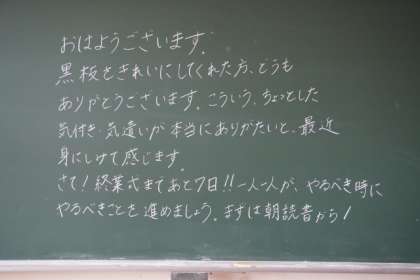 おはようございます。
黒板をきれいにしてくれた方、どうも
ありがとうございます。こういう、ちょっとした
気付き・気遣いが本当にありがたいと、最近
身にしみて感じます。
さて!終業式まであと7日!!一人一人が、やるべき時に
やるべきことを進めましょう。まずは朝読書から!